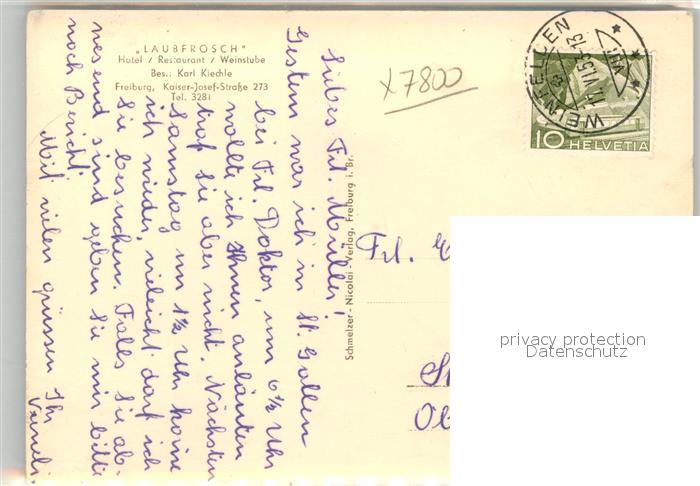 „LAUBFROSCH"
Hotel / Restaurant / Weinstube
Bes.: Karl Kiechle
Freiburg, Kaiser-Josef-Straße 273
Tel. 3281
x 7800
WEINFELDEN
11.VI.53-13
VII
10 HELVETIA
Liebes Frl. Müller!
Gestern war ich in St. Gallen
bei Frl. Doktor, um 6½ Uhr
wollte ich Ihnen anläuten
traf sie aber nicht. Nächsten
Samstag um 1½ Uhr komme
ich wieder, vieleicht darf ich
Sie besuchen. Falls Sie ab-
wesend sind geben Sie mir bitte
noch Bericht.
Mit vielen grüssen Ihr
Schmelzer-Nicolai-Verlag, Freiburg i. Br.
Frl.
St
Ob
privacy protection
Datenschutz